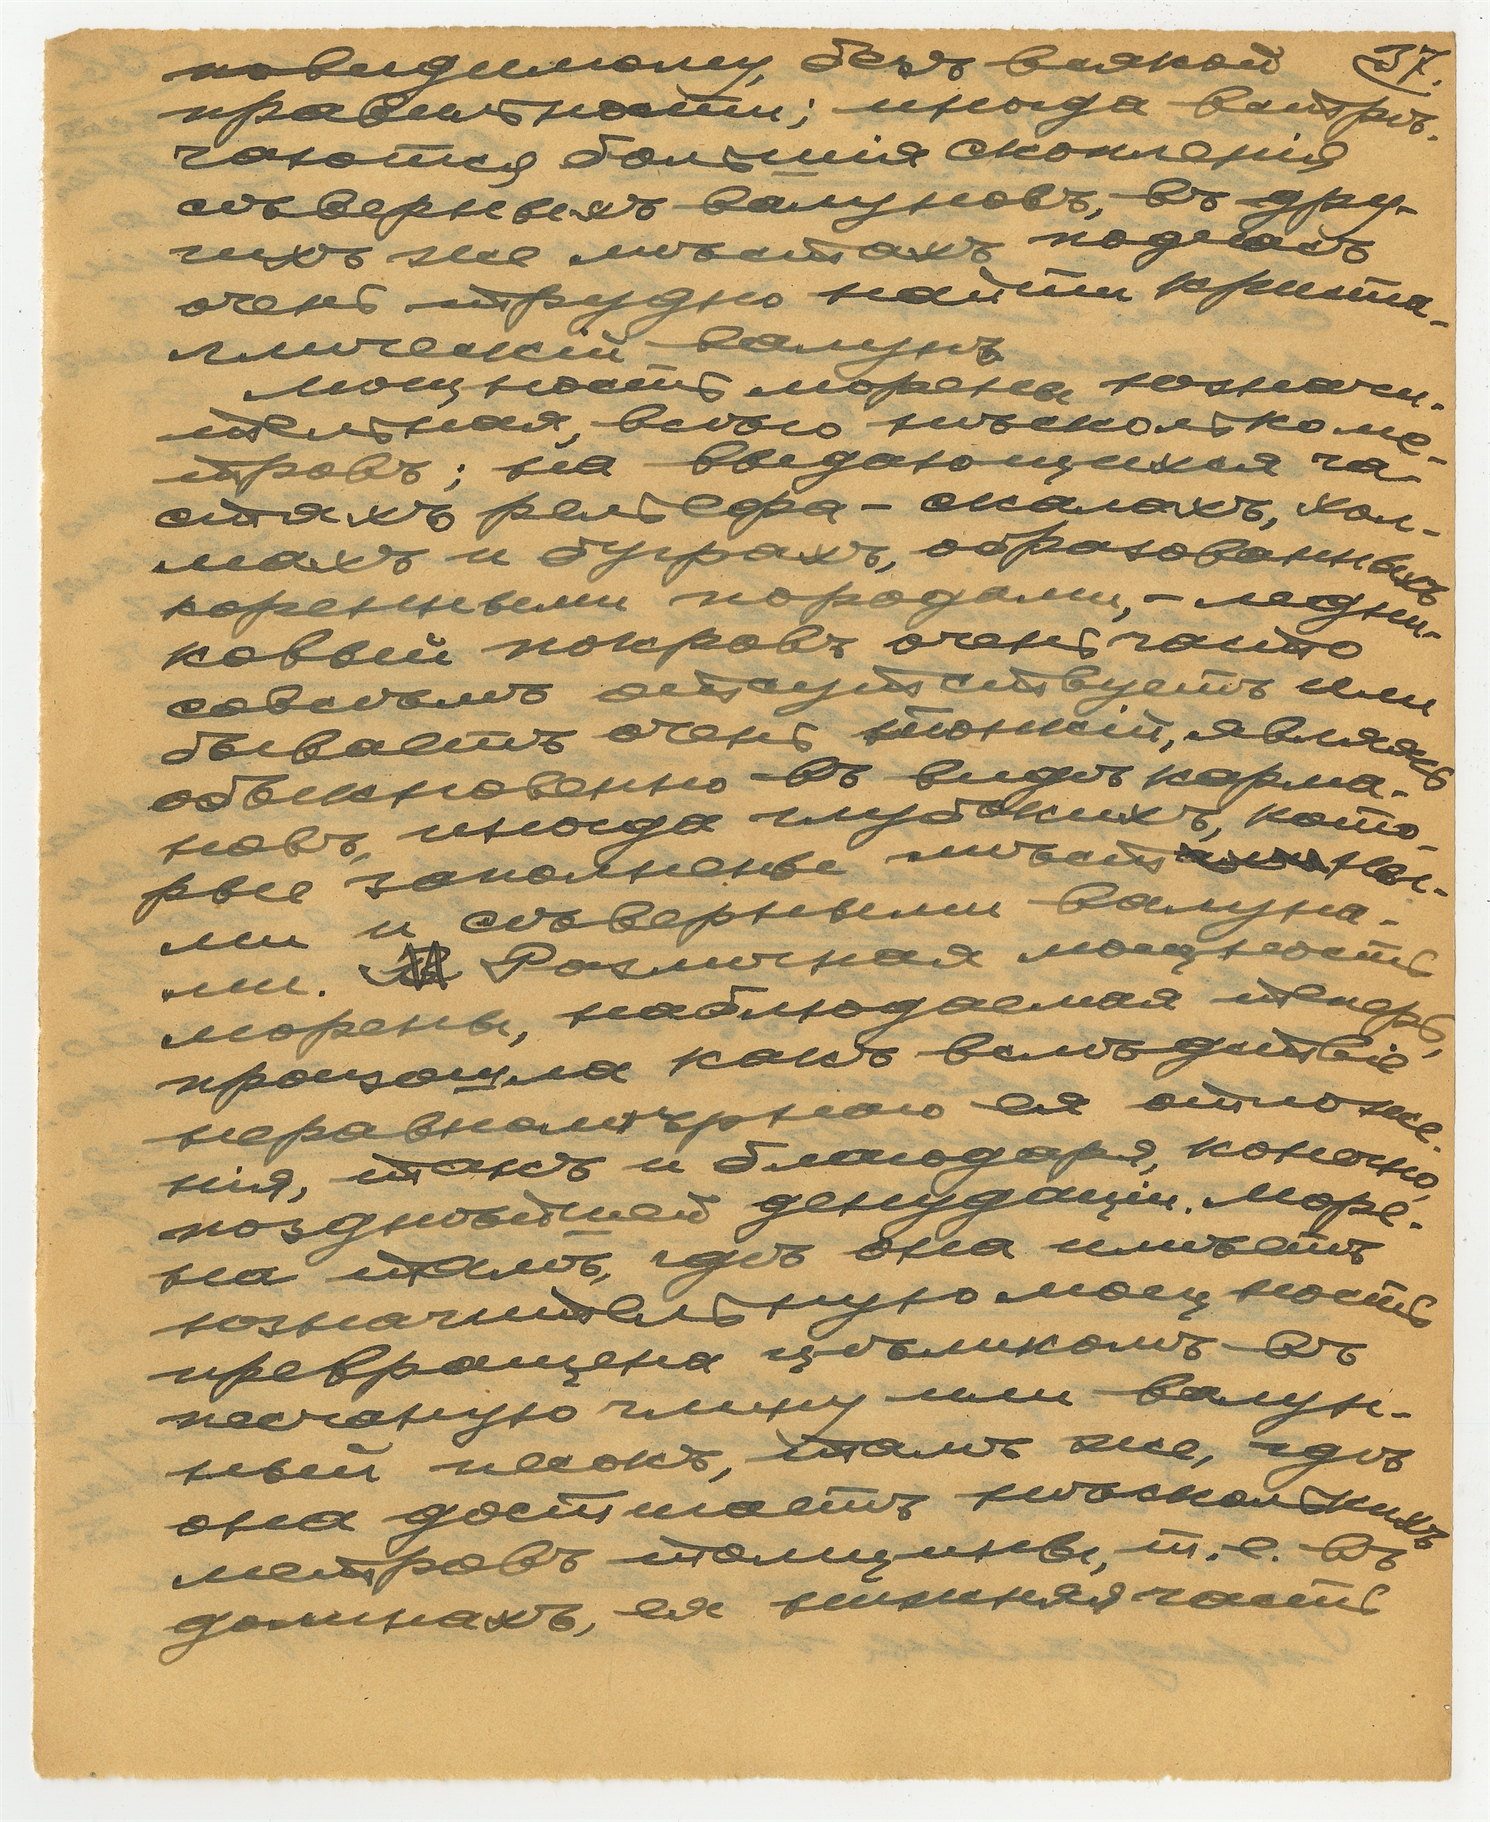 37.
повидимому, безъ всякой
правильности; иногда встрѣ-
чаются большія скопленія
сѣверныхъ валуновъ, въ дру-
гихъ же мѣстахъ подчасъ
очень трудно найти криста-
ллическій валунъ
Мощность морены незначи-
тельная, всего нѣсколько ме-
тровъ; на выдающихся ча-
стяхъ рельефа – скалахъ, хол-
махъ и буграхъ, образованныхъ
коренными породами, – ледни-
ковый покровъ очень часто
совсѣмъ отсутствуетъ или
бываетъ очень тонкій, являясь
обыкновенно въ видѣ карма-
новъ, иногда глубокихъ, кото-
рые заполнены мѣстны-
ми и сѣверными валуна-
ми. Различная мощность
морены, наблюдаемая теперь,
произошла какъ вслѣдствіе
неравномѣрнаго ея отложе-
нія, такъ и благодаря, конечно,
позднѣйшей денудаціи. Море-
на тамъ, гдѣ она имѣетъ
незначительную мощность
превращена цѣликомъ въ
песчаную глину или валун-
ный песокъ, тамъ же, гдѣ
она достигаетъ нѣсколькихъ
метровъ толщины, т.е. въ
долинахъ, ея нижняя часть